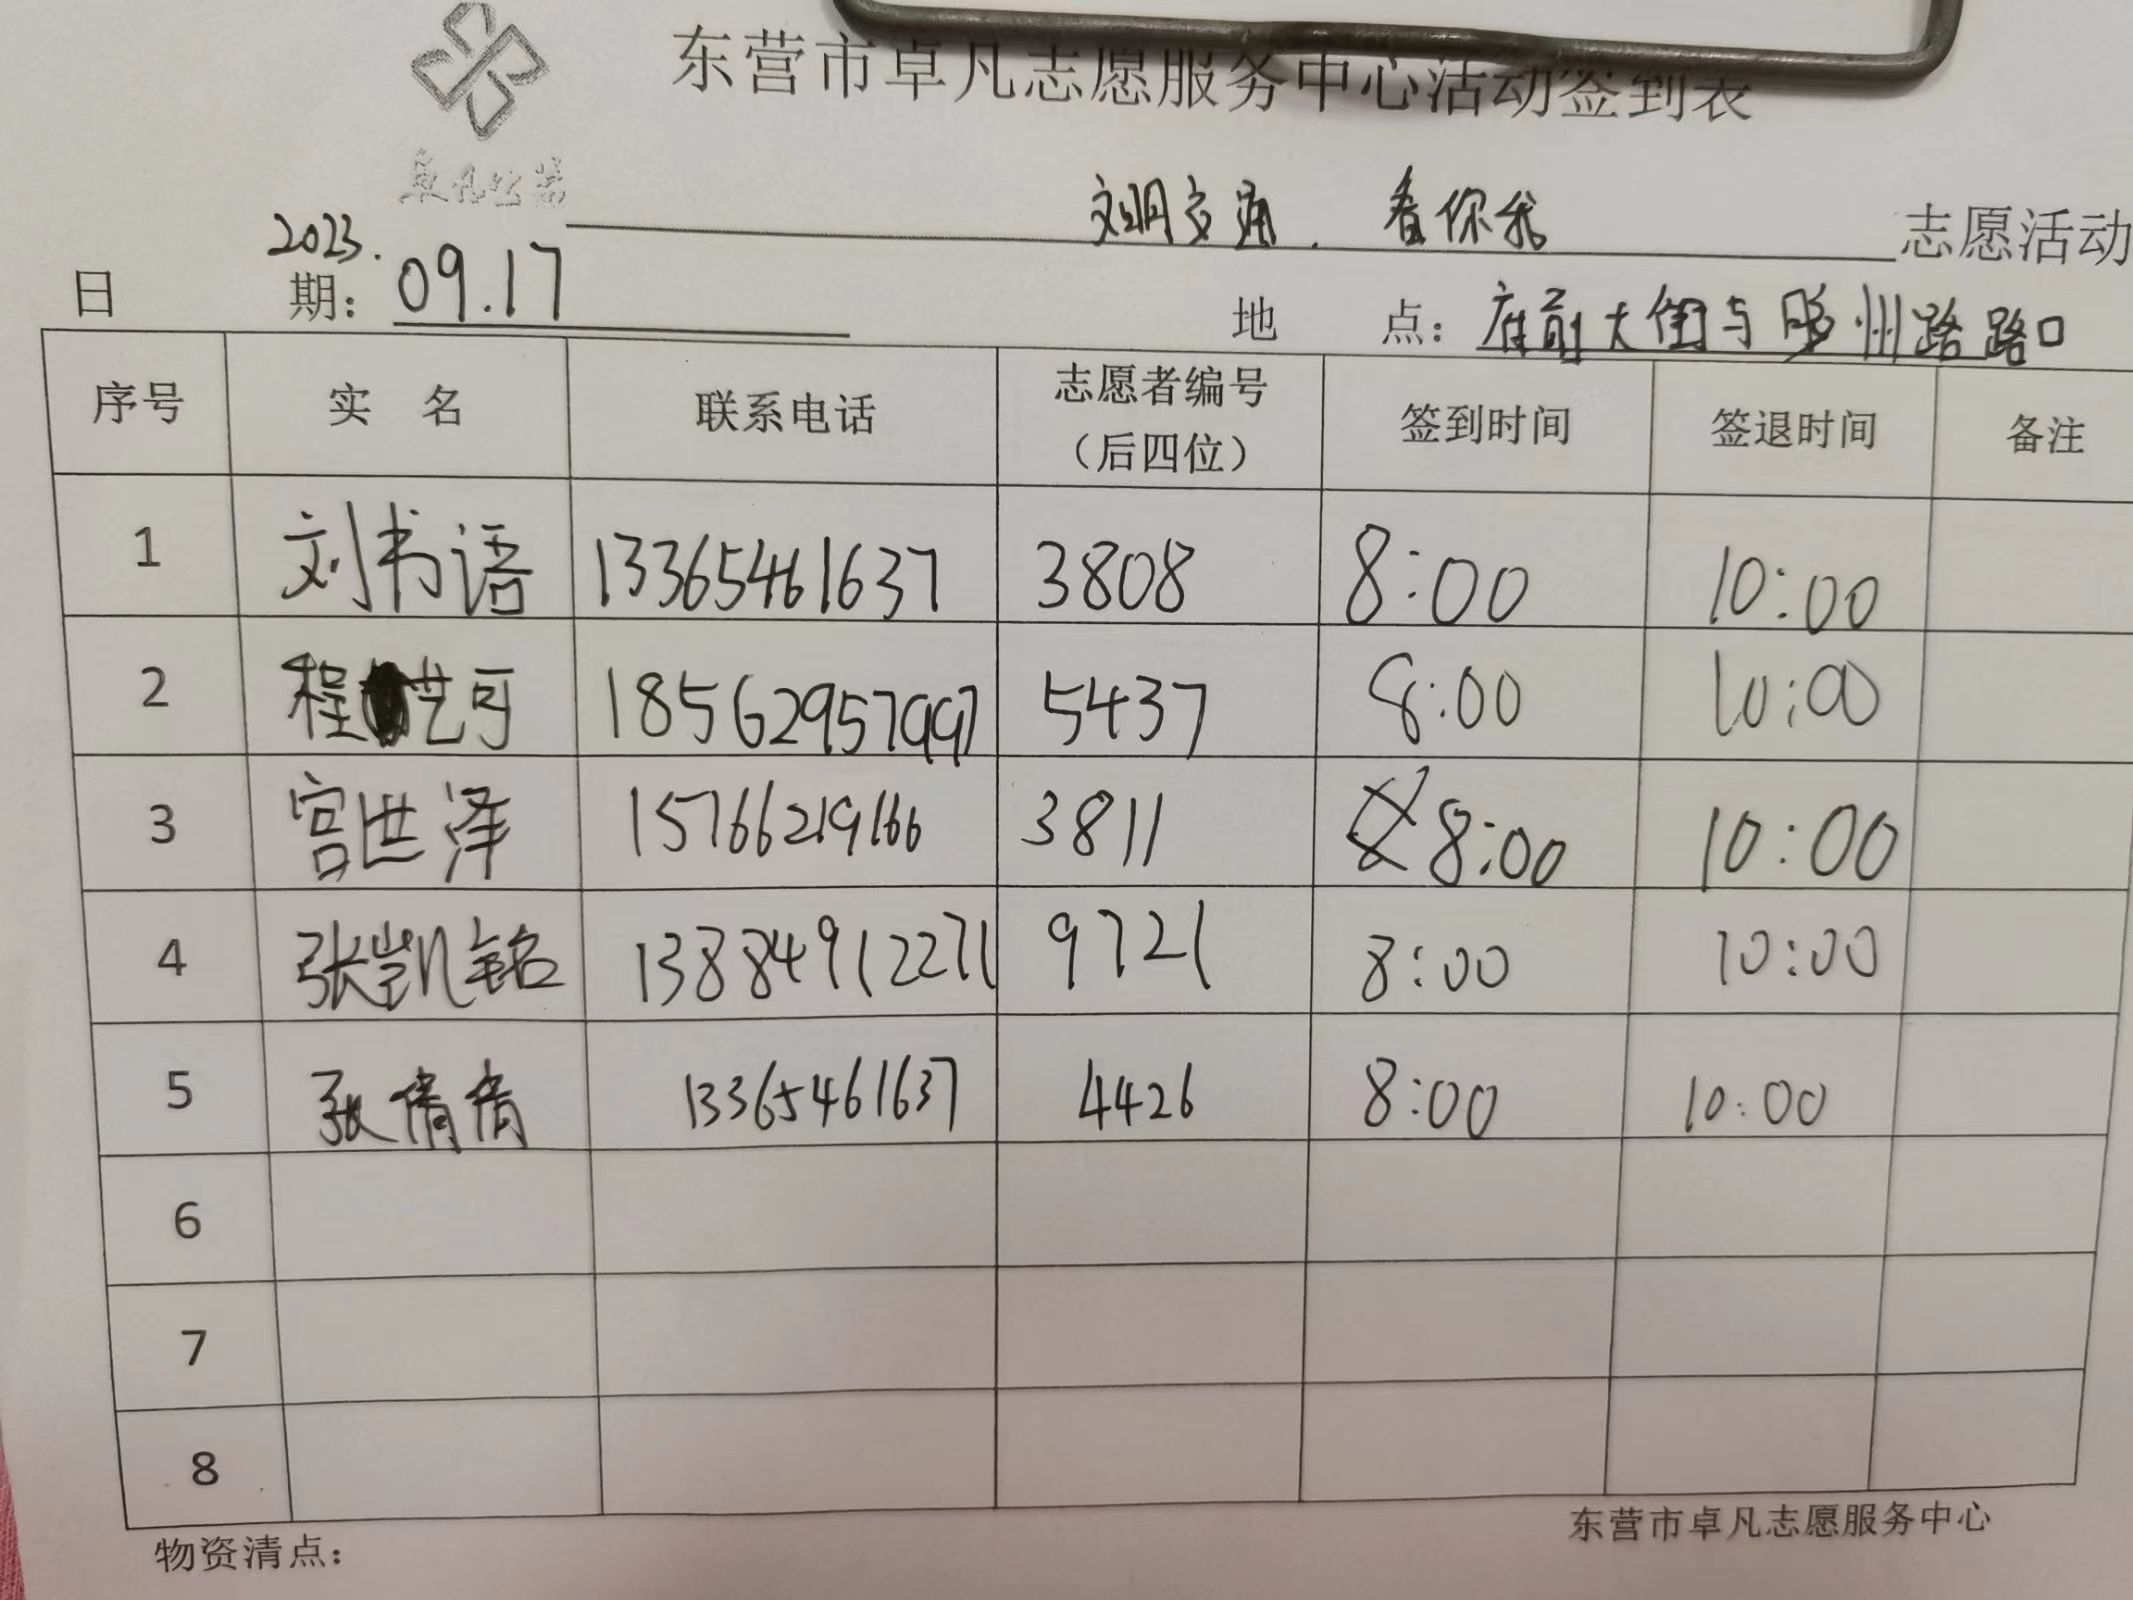 东营市卓凡志愿服务中心活动签到表
卓凡公益
文明交通. 看你我 志愿活动
日 期: 2023. 09.17 地 点: 府前大街与胶州路路口
序号 实 名 联系电话 志愿者编号（后四位） 签到时间 签退时间 备注
1 刘书语 13365461637 3808 8:00 10:00
2 程艺可 18562957997 5437 8:00 10:00
3 宫世泽 15766219166 3811 8:00 10:00
4 张凯铭 13884912271 9721 8:00 10:00
5 张倩倩 13365461637 4426 8:00 10:00
6
7
8
物资清点: 东营市卓凡志愿服务中心